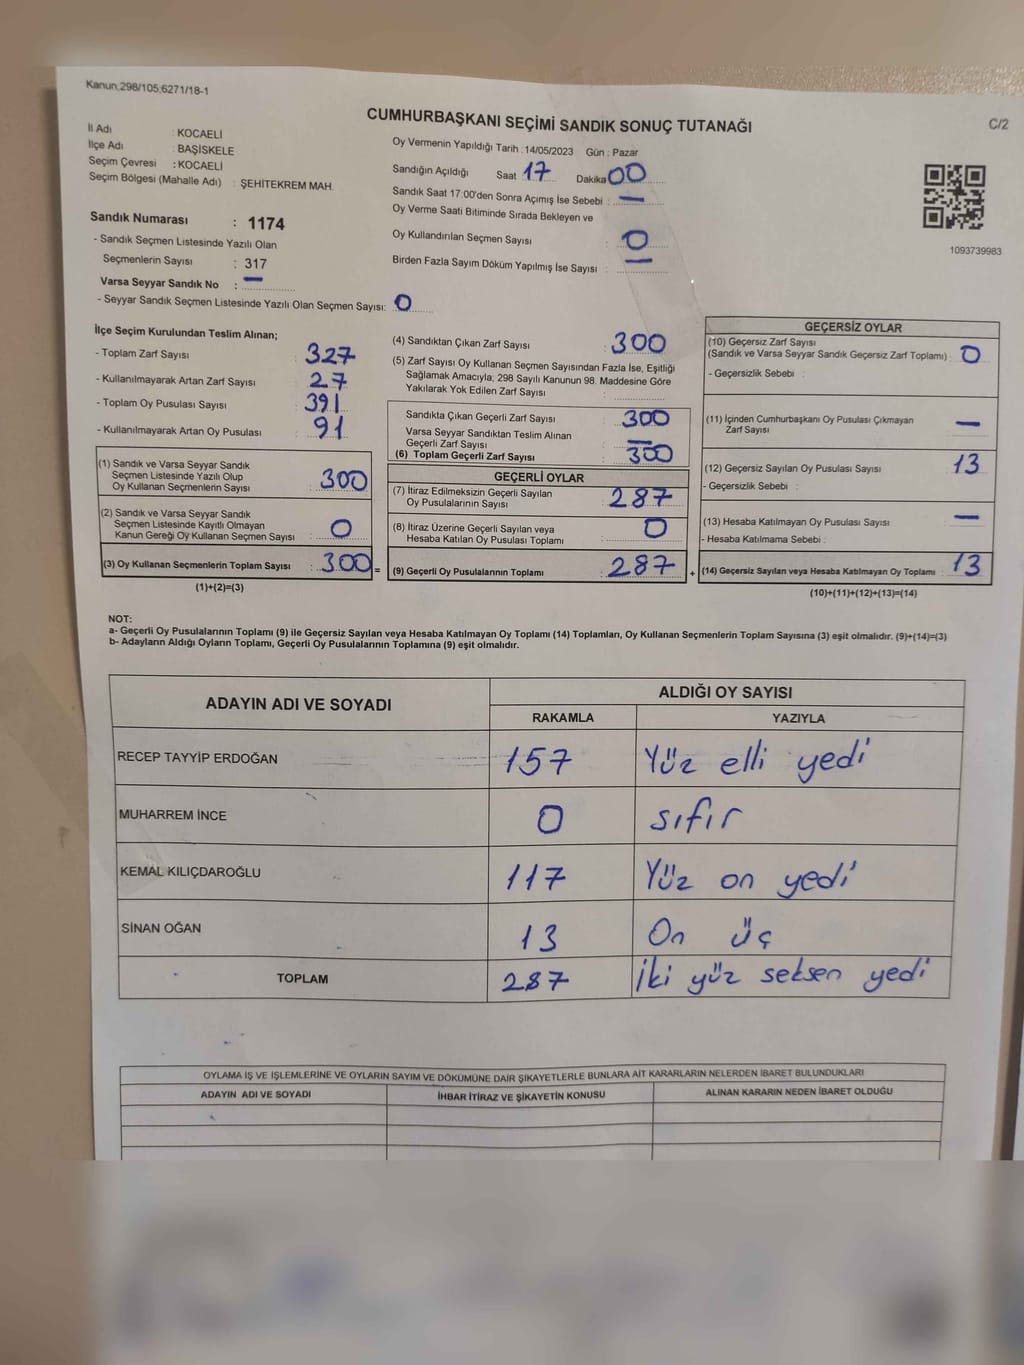 Kanun,298/105;6271/18-1
CUMHURBAŞKANI SEÇİMİ SANDIK SONUÇ TUTANAĞI
C/2
İl Adı : KOCAELİ
İlçe Adı : BAŞİSKELE
Seçim Çevresi : KOCAELİ
Seçim Bölgesi (Mahalle Adı) : ŞEHİTEKREM MAH.
Sandık Numarası : 1174
- Sandık Seçmen Listesinde Yazılı Olan
Seçmenlerin Sayısı : 317
Varsa Seyyar Sandık No : —
- Seyyar Sandık Seçmen Listesinde Yazılı Olan Seçmen Sayısı: 0
Oy Vermenin Yapıldığı Tarih : 14/05/2023 Gün : Pazar
Sandığın Açıldığı Saat 17 Dakika 00
Sandık Saat 17:00'den Sonra Açımış İse Sebebi : —
Oy Verme Saati Bitiminde Sırada Bekleyen ve
Oy Kullandırılan Seçmen Sayısı : 0
Birden Fazla Sayım Döküm Yapılmış İse Sayısı : —
1093739983
İlçe Seçim Kurulundan Teslim Alınan;
- Toplam Zarf Sayısı : 327
- Kullanılmayarak Artan Zarf Sayısı : 27
- Toplam Oy Pusulası Sayısı : 391
- Kullanılmayarak Artan Oy Pusulası : 91
(1) Sandık ve Varsa Seyyar Sandık
Seçmen Listesinde Yazılı Olup
Oy Kullanan Seçmenlerin Sayısı : 300
(2) Sandık ve Varsa Seyyar Sandık
Seçmen Listesinde Kayıtlı Olmayan
Kanun Gereği Oy Kullanan Seçmen Sayısı : 0
(3) Oy Kullanan Seçmenlerin Toplam Sayısı : 300 =
(1)+(2)=(3)
(4) Sandıktan Çıkan Zarf Sayısı : 300
(5) Zarf Sayısı Oy Kullanan Seçmen Sayısından Fazla İse, Eşitliği
Sağlamak Amacıyla; 298 Sayılı Kanunun 98. Maddesine Göre
Yakılarak Yok Edilen Zarf Sayısı :
Sandıkta Çıkan Geçerli Zarf Sayısı : 300
Varsa Seyyar Sandıktan Teslim Alınan
Geçerli Zarf Sayısı : —
(6) Toplam Geçerli Zarf Sayısı : 300
GEÇERLİ OYLAR
(7) İtiraz Edilmeksizin Geçerli Sayılan
Oy Pusulalarının Sayısı : 287
(8) İtiraz Üzerine Geçerli Sayılan veya
Hesaba Katılan Oy Pusulası Toplamı : 0
(9) Geçerli Oy Pusulalarının Toplamı : 287 +
GEÇERSİZ OYLAR
(10) Geçersiz Zarf Sayısı
(Sandık ve Varsa Seyyar Sandık Geçersiz Zarf Toplamı) : 0
- Geçersizlik Sebebi :
(11) İçinden Cumhurbaşkanı Oy Pusulası Çıkmayan
Zarf Sayısı : —
(12) Geçersiz Sayılan Oy Pusulası Sayısı : 13
- Geçersizlik Sebebi :
(13) Hesaba Katılmayan Oy Pusulası Sayısı : —
- Hesaba Katılmama Sebebi :
(14) Geçersiz Sayılan veya Hesaba Katılmayan Oy Toplamı : 13
(10)+(11)+(12)+(13)=(14)
NOT:
a- Geçerli Oy Pusulalarının Toplamı (9) ile Geçersiz Sayılan veya Hesaba Katılmayan Oy Toplamı (14) Toplamları, Oy Kullanan Seçmenlerin Toplam Sayısına (3) eşit olmalıdır. (9)+(14)=(3)
b- Adayların Aldığı Oyların Toplamı, Geçerli Oy Pusulalarının Toplamına (9) eşit olmalıdır.
ADAYIN ADI VE SOYADI
ALDIĞI OY SAYISI
RAKAMLA YAZIYLA
RECEP TAYYİP ERDOĞAN 157 Yüz elli yedi
MUHARREM İNCE 0 sıfır
KEMAL KILIÇDAROĞLU 117 Yüz on yedi
SİNAN OĞAN 13 On üç
TOPLAM 287 İki yüz seksen yedi
OYLAMA İŞ VE İŞLEMLERİNE VE OYLARIN SAYIM VE DÖKÜMÜNE DAİR ŞİKAYETLERLE BUNLARA AİT KARARLARIN NELERDEN İBARET BULUNDUKLARI
ADAYIN ADI VE SOYADI İHBAR İTİRAZ VE ŞİKAYETİN KONUSU ALINAN KARARIN NEDEN İBARET OLDUĞU